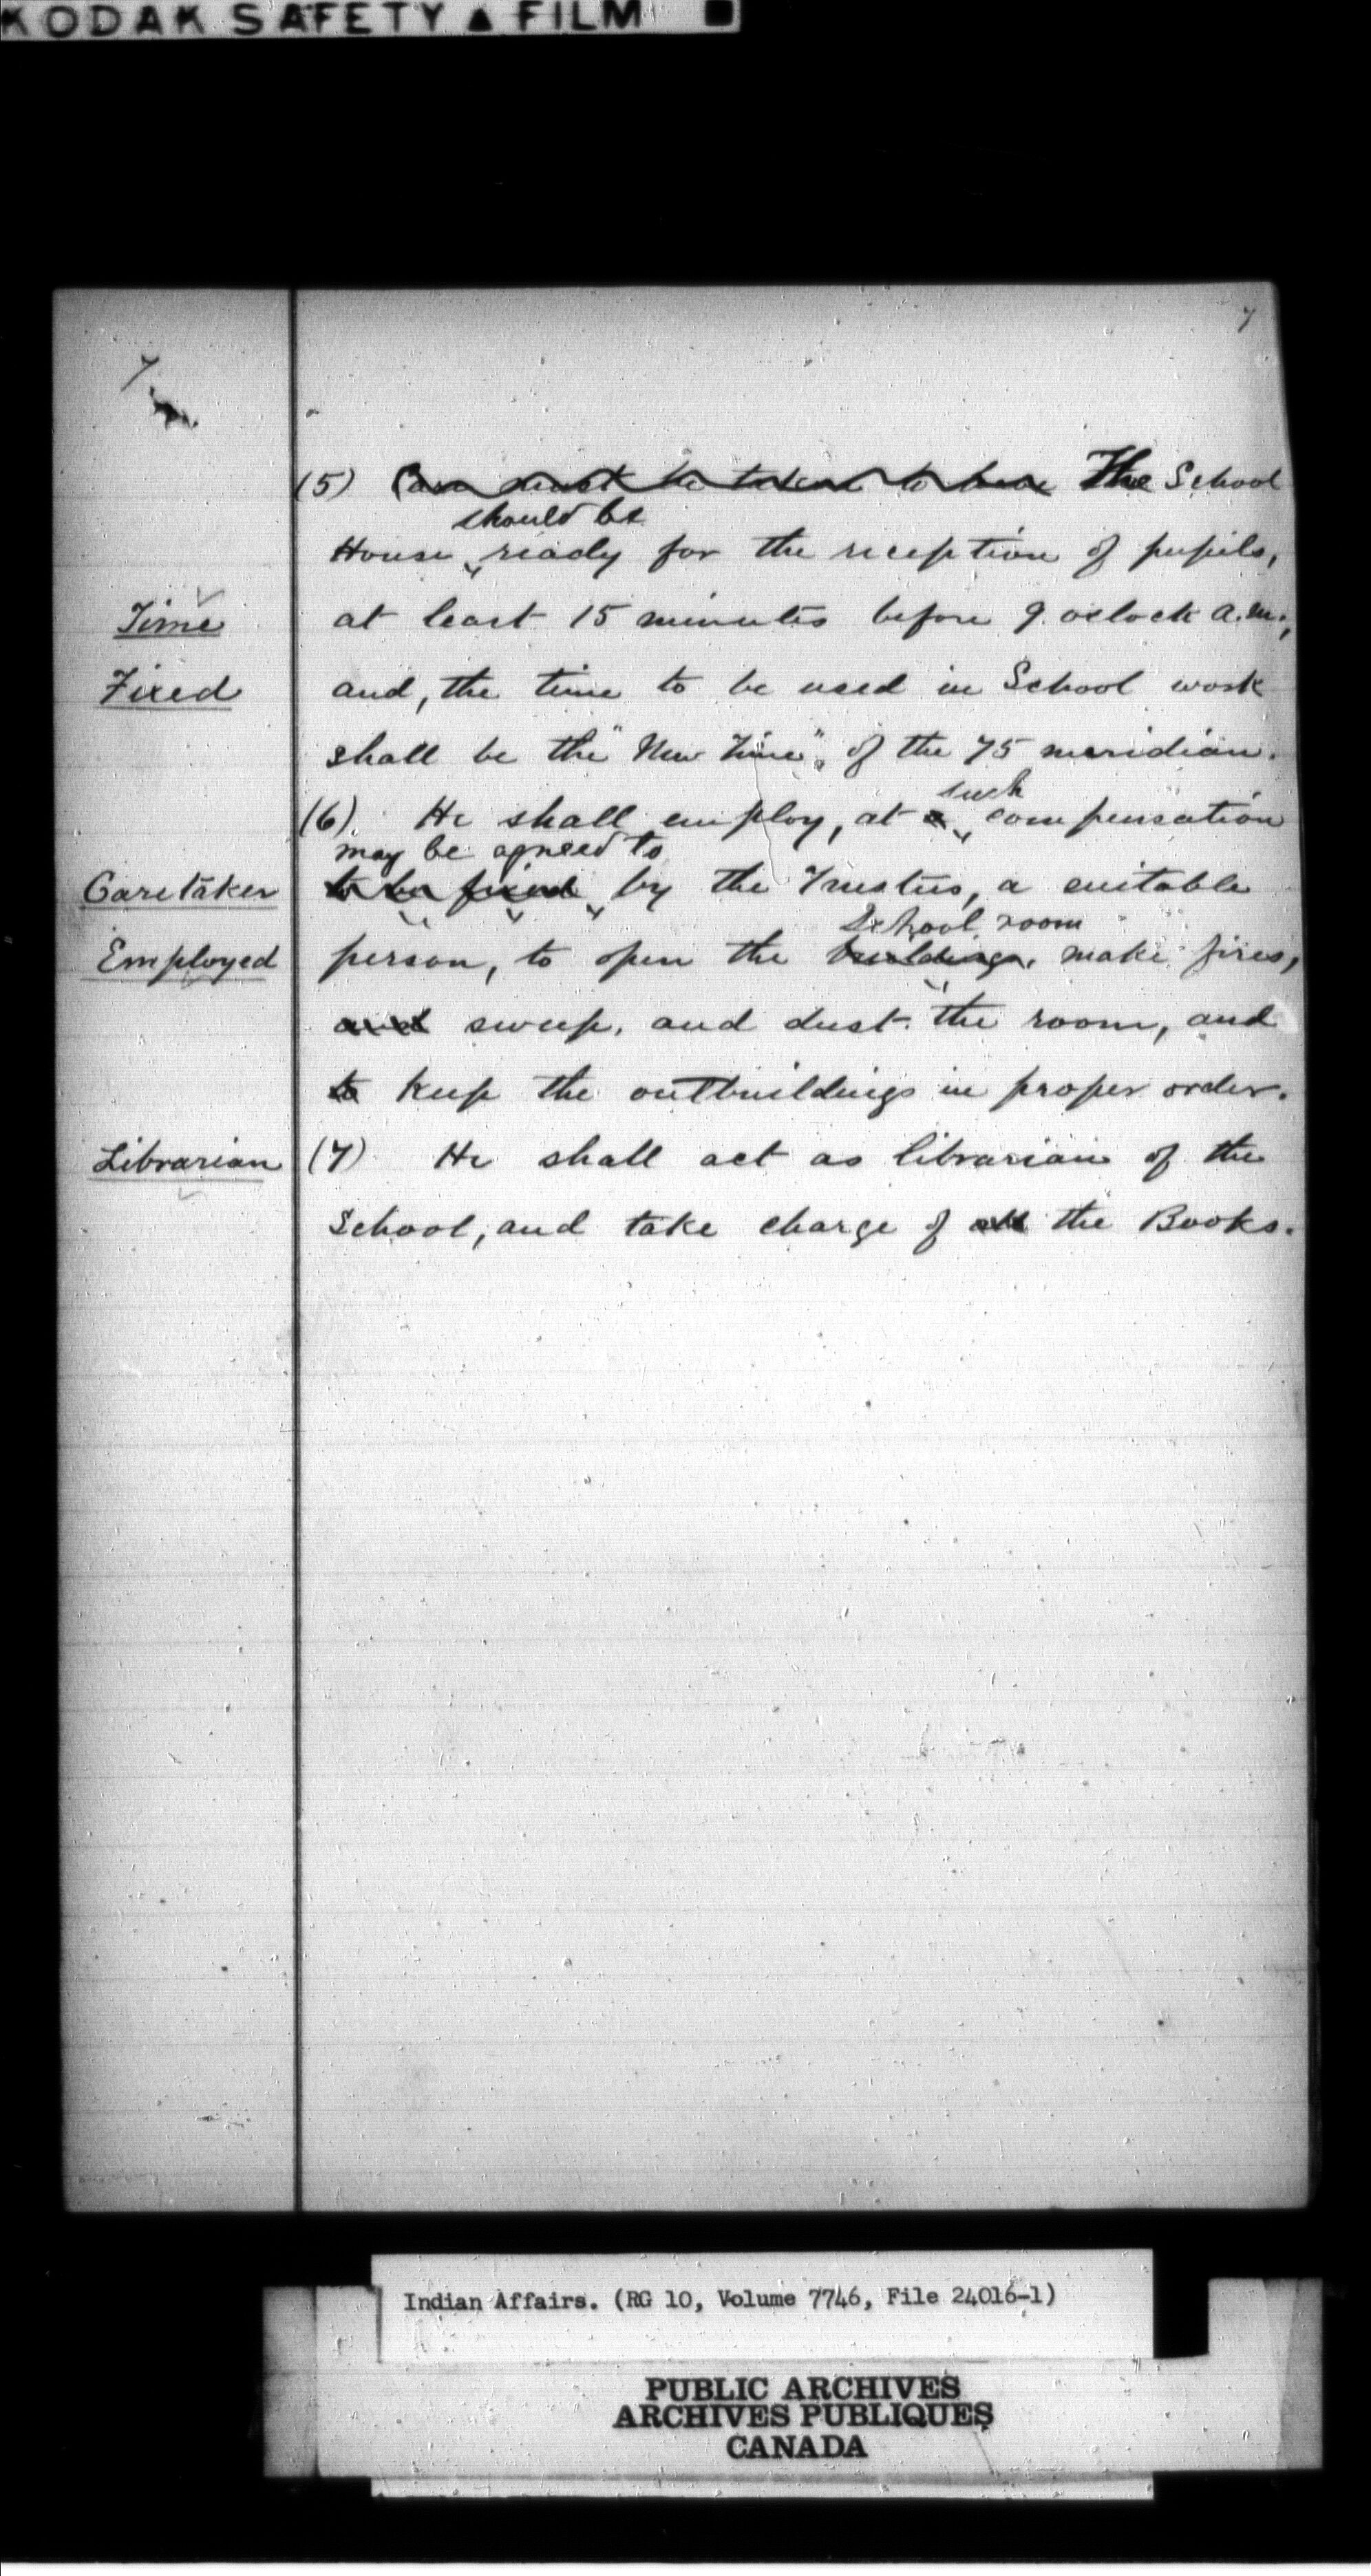 KODAK SAFETY ▲ FILM
7
7
(5) Care must be taken to have The School
should be
House ready for the reception of pupils,
Time
at least 15 minutes before 9. oclock a.m.,
Fixed
and, the time to be used in School work
shall be the "New Time", of the 75 meridian.
such
(6). He shall employ, at a compensation
may be agreed to
Caretaker
to be fixed by the Trustees, a suitable
School room
Employed
person, to open the buildings, make fires,
and sweep, and dust the room, and
to keep the outbuildings in proper order.
Librarian
(7) He shall act as librarian of the
School, and take charge of all the Books.
Indian Affairs. (RG 10, Volume 7746, File 24016-1)
PUBLIC ARCHIVES
ARCHIVES PUBLIQUES
CANADA